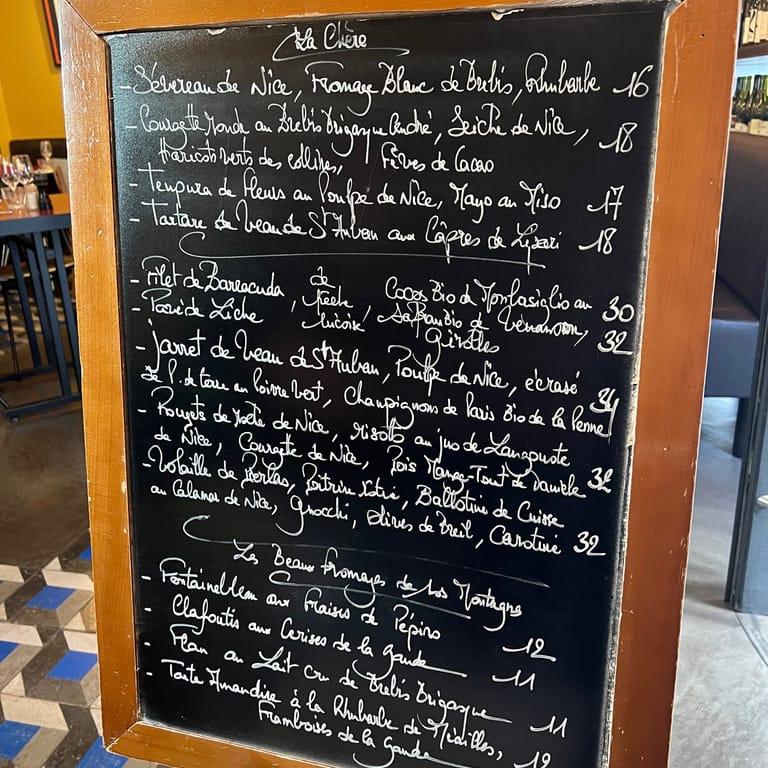 La Chère
- Sévereau de Nice, Fromage Blanc de Brebis, Rhubarbe 16
- Courgette Ronde au Brebis Brigasque Cendré, Seiche de Nice, 18
Haricots verts des collines, Fèves de Cacao
- Tempura de Fleurs au Poulpe de Nice, Mayo au Miso 17
- Tartare de Veau de St Auban aux Câpres de Lipari 18
- Filet de Barracuda de Coco Bio de au 30
- Pavé de Liche, Pêche niçoise, Safran Bio de, 32
Girolles
- Jarret de Veau de St Auban, Poulpe de Nice, écrasé 34
de P. de terre au Poivre Vert, Champignons de Paris Bio de la Penne
- Rougets de Roche de Nice, risotto au jus de Langouste
de Nice, Courgette de Nice, Pois Mange-Tout de Daniele 32
- Volaille de, Poitrine, Ballotine de Cuisse
au Calamar de Nice, gnocchi, olives de Breil, Carotine 32
Les Beaux Fromages de nos Montagnes
- Fontainebleau aux Fraises de Pépino 12
- Clafoutis aux Cerises de la gaude 11
- Flan au Lait cru de Brebis Brigasque 11
- Tarte Amandine à la Rhubarbe de, 12
Framboises de la gaude